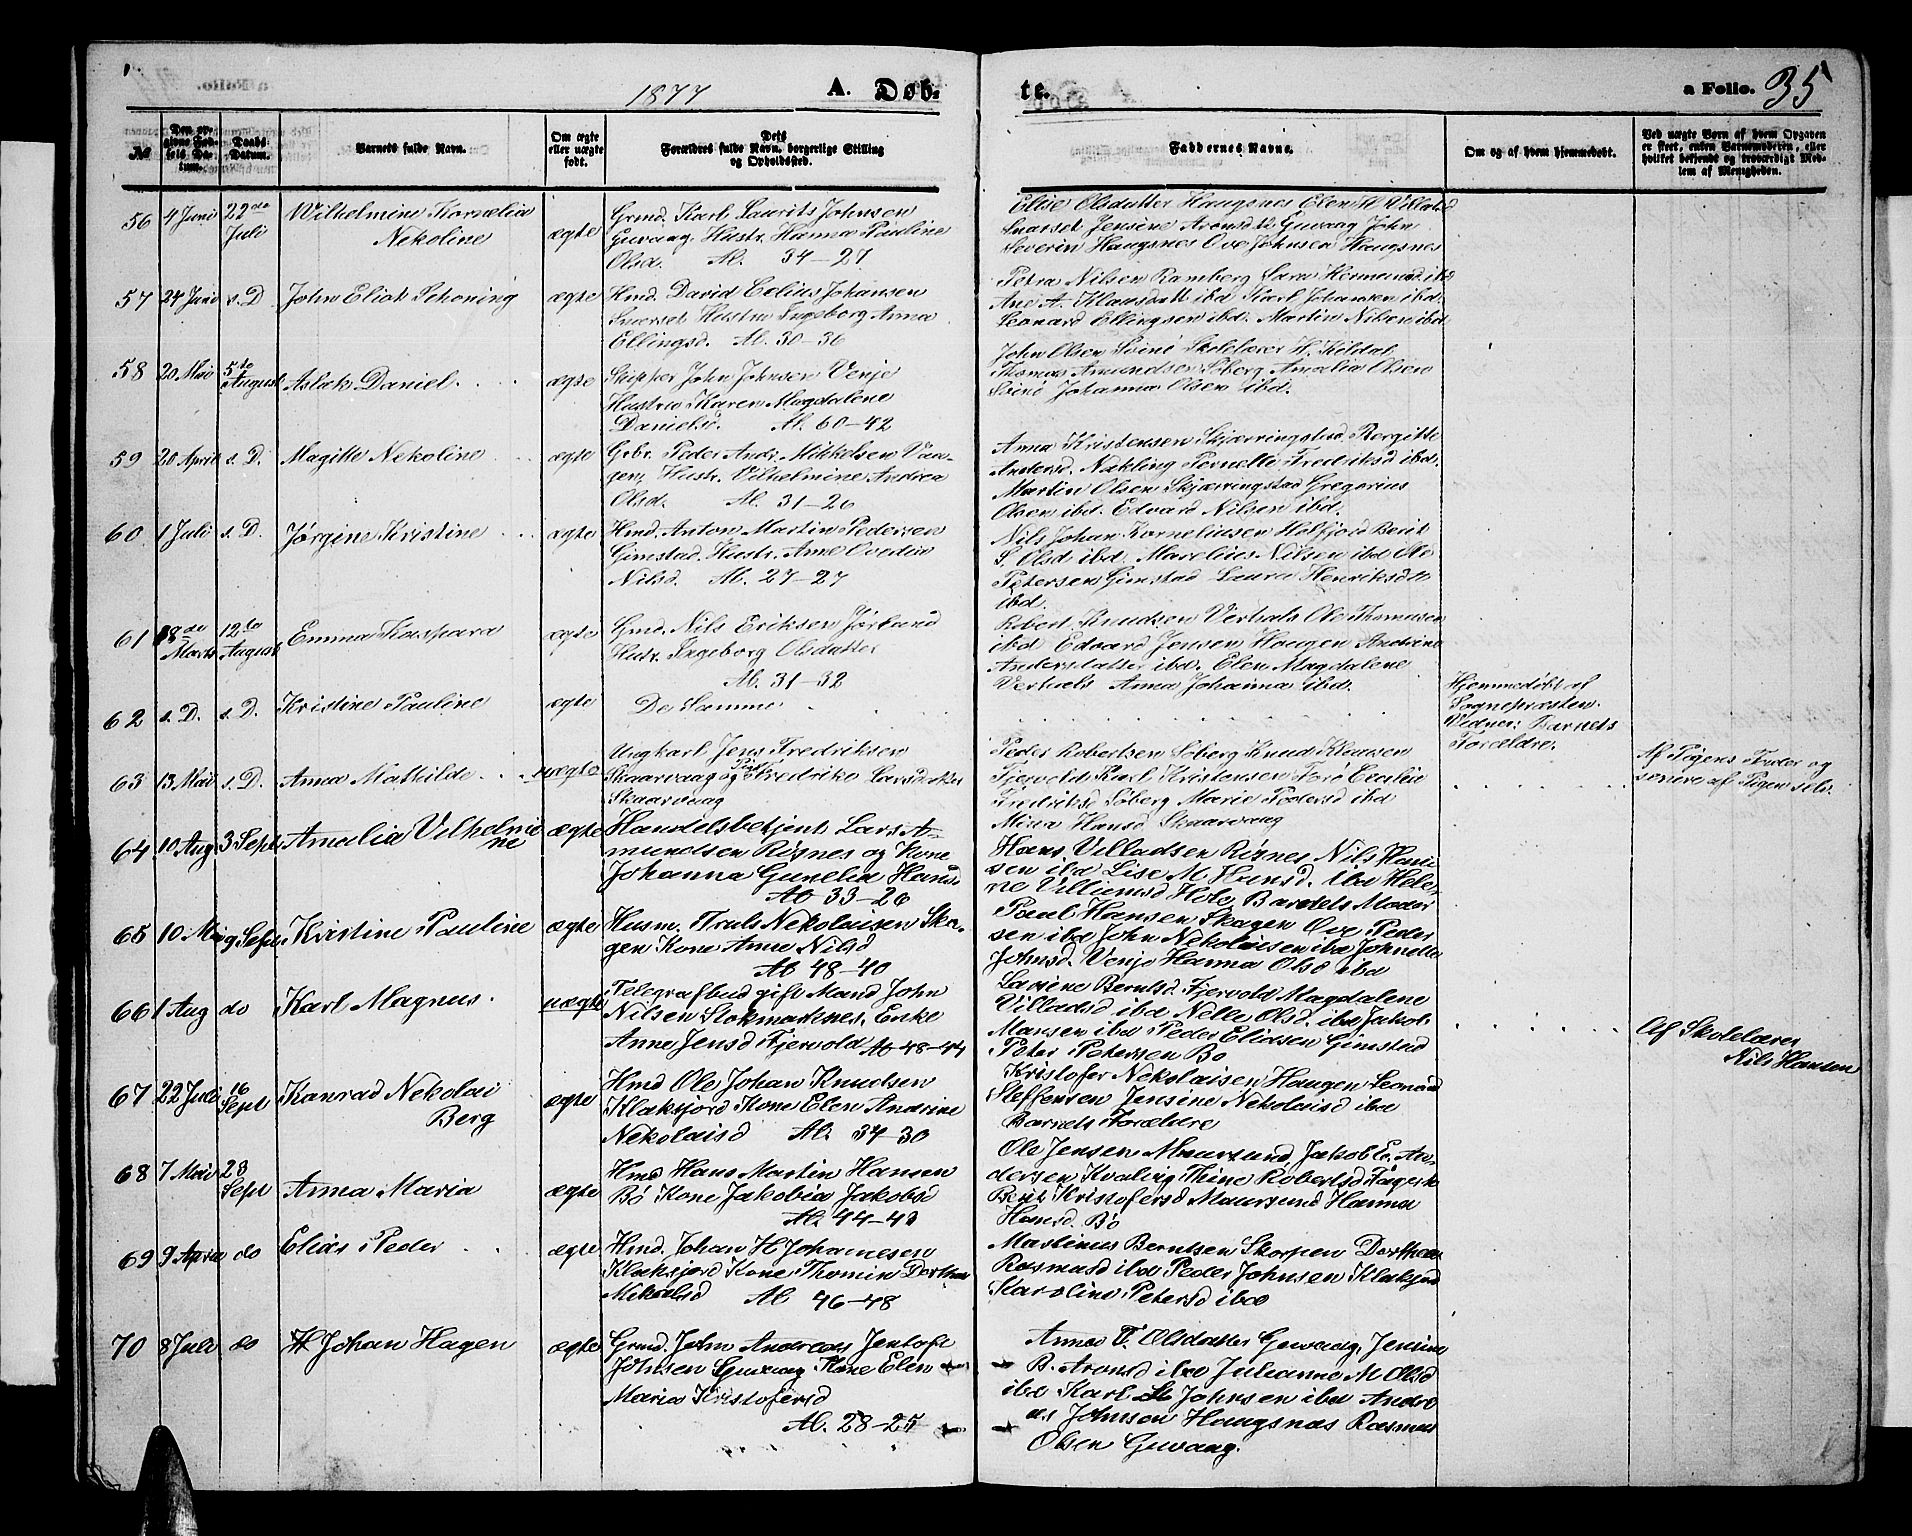 1877 A. Døb- te. a Folio. 35
№
Den an-
givne Fød-
sels Da-
tum.
Daabs-
Datum.
Barnets fulde Navn.
Om ægte
eller uægte
født.
Dets
Forældres fulde Navn, borgerlige Stilling
og Opholdssted.
Faddernes Navne.
Om og af hvem hjemmedøbt.
Ved uægte Børn af hvem Opgaven
er skeet, enten Barnemoderen, eller
hvilket bekjendt og troværdigt Med-
lem af Menigheden.
56 4 Juni 22de Juli Wilhelmine Kornelia
Nekoline ægte
Grmd. Karl Laurits Johnsen
Guvaag. Hustr. Hanna Pauline
Olsd. Al. 34-27
Elise Olsdatter Haugsnes Elen
Snarset Jensine Aronsd. Guvaag John
Severin Haugsnes Ove Johnsen Haugsnes
57 24 Juni s. D John Eliot Schoning ægte
Hmd. David Johansen
Snarset Hustru Ingeborg Anna
Ellingsd. Al. 30-36
Petra Nilsen Ramberg Sara ibd
Ane A. Klausdatt ibd Karl Johansen ibd.
Leonard Ellingsen ibd. Martin Nilsen ibd
58 20 Mai 5te August Aslak Daniel ægte
Skipper John Johnsen Venje
Hustru Karen Magdalene
Danielsd. Al. 60-42
John Olsen Skolelærer H. Kildal
Thomas Amundsen Søberg Amalia Olsen
Johanna Olsen ibd.
59 20 April s. D. Magitte Nekoline ægte
Grbr. Peder Andr. Mikkelsen Vaa-
gen, Hustr. Vilhelmine Andrea
Olsd. Al. 31-26
Anna Kristensen Skjærringstad Bergitte
Andersd. Nykling Pernelle Fredriksd ibd.
Martin Olsen Skjærringstad Gregorius
Olsen ibd. Edvard Nilsen ibd.
60 1 Juli s. D. Jørgine Kristine ægte
Hmd. Anton Martin Pedersen
Gimstad. Hustr. Ane Ovedia
Nilsd. Al. 27-27
Nils Johan Korneliussen Holfjord Berit
S. Olsd ibd. Marelius Nilsen ibd Ole
Petersen Gimstad Laura Henriksdtt
ibd.
61 18de Marts 12te August Emma Kaspara ægte
Gmd. Nils Eriksen
Hustr. Ingeborg Olsdatter
Al. 31-32
Robert Knudsen Verhals Ole Thomassen
ibd Edvard Jensen Haugen Andrine
Andersdatter ibd. Elen Magdalene
Verhals Anna Johanna ibd.
62 s. D. s. D. Kristine Pauline ægte
De Samme
Hjemmedøbt af
Sognepræsten.
Vidner: Barnets
Forældre.
63 13 Mai s. D. Anna Mathilde uægte
Ungkarl Jens Fredriksen
Skaarvaag og Pige Fredrikke
Skaarvaag
Peder Robertsen Søberg Knud Klausen
Fjervold Karl Kristensen Cecilie
Fredriksd Søberg Marie Pedersd ibd
Mina Hansd Skaarvaag
Af Pigens Fader og
senere af Pigen selv.
64 10 Aug. 3 Sept. Amalia Vilhelmi-
ne ægte
Handelsbetjent Lars A-
mundsen Risnes og Kone
Johanna Gunelia Hansd.
Al 33-26
Hans Villadsen Risnes Nils Han-
sen ibd Lise M. Hansd. ibd Hele-
ne Villumsd Hole, Barnets Moder
65 10 Mai 9 Sept. Kristine Pauline ægte
Husm. Truls Nekolaisen Ska-
gen Kone Anne Nilsd
Al 48-40
Paul Hansen Skagen Ove Peder
sen ibd John Nekolaisen ibd Johnetta
Johnsd. Venje Hanna Olsd ibd
66 1 Aug do Karl Magnus. uægte
Telegrafbud gift Mand John
Nilsen Stokmarknes, Enke
Anne Jensd Fjervold Al 48-44
Laviene Berntsd. Fjervold Magdalene
Villadsd ibd Nelle Olsd. ibd Jakob
Hansen ibd Peder Eliasen Gimstad
Peter Petersen Bø
Af Skolelærer
Nils Hansen
67 22 Juli 16 Sept Konrad Nekolai
Berg ægte
Hmd Ole Johan Knudsen
Klaksjord Kone Elen Andrine
Nekolaisd Al. 34-30
Kristofer Nekolaisen Haugen Leonard
Steffensen Jensine Nekolaisd ibd
Barnets Forældre
68 7 Mai 23 Sept Anna Maria ægte
Hmd Hans Martin Hansen
Bø Kone Jakobia Jakobsd
Al. 44-43
Ole Jensen Maursund Jakob E. An-
dersen Kvalvig Thine Robertsd
Berit Kristofersd Maursund Hanna
Hansd. Bø
69 9 April do Elias Peder ægte
Hmd. Johan H Johannesen
Klaksjord Kone Thomin Dorthea
Mikkelsd Al 46-48
Martinus Berntsen Skorpen Dorthea
Rasmusd ibd Peder Johnsen Klaksjord
Karoline Petersd ibd
70 8 Juli do H Johan Hagen ægte
Grmd. John Andreas Jentoft
Johnsen Guvaag Kone Elen
Maria Kristofersd
Al. 28-25
Anna T. Olsdatter Guvaag, Jensine
B. Aronsd ibd Julianne M Olsd
ibd Karl Johnsen ibd Andre
as Johnsen Haugsnes Rasmus
Olsen Guvaag.